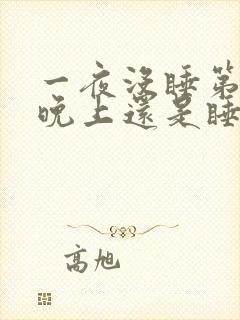 一夜沒睡第
晚上還是睡
高旭